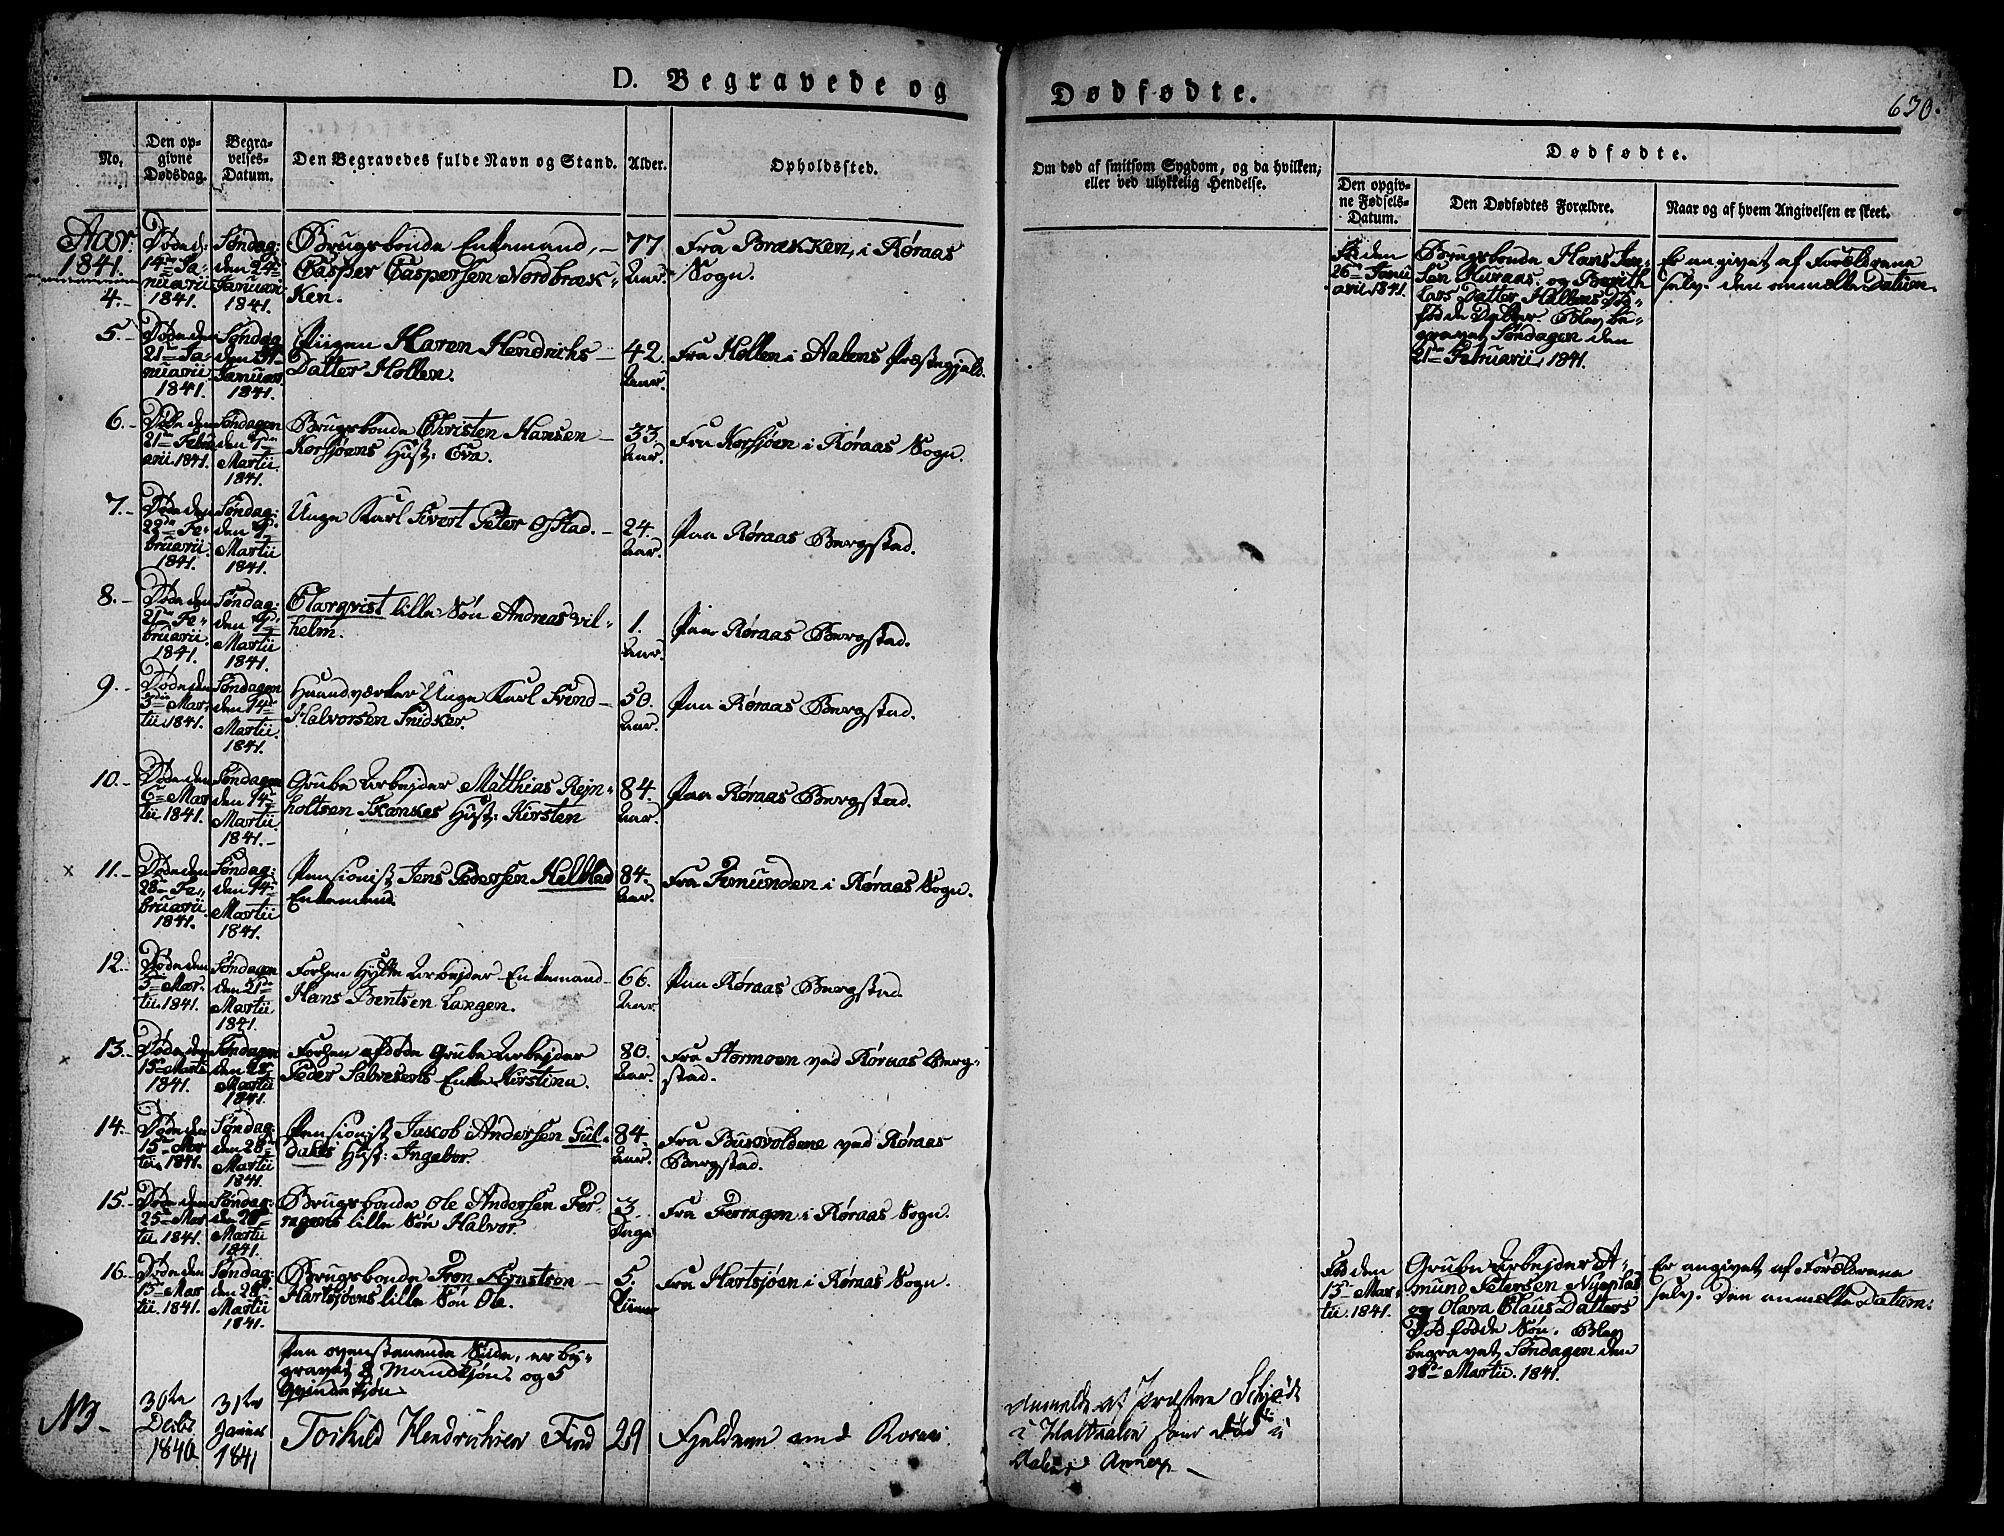 D. Begravede og
Dødfødte.
630.
No.
Den op-
givne
Dødsdag.
Begra-
velses-
Datum.
Den Begravedes fulde Navn og Stand.
Alder.
Opholdssted.
Om død af smitsom Sygdom, og da hvilken;
eller ved ulykkelig Hendelse.
Dødfødte.
Den opgiv-
ne Fødsels-
Datum.
Den Dødfødtes Forældre.
Naar og af hvem Angivelsen er skeet.
Aar
1841.
4.
Døde d:
14de Ja-
nuarii
1841.
Søndag:
den 24de
Januari
1841.
Brugsbonde Enkemand,
Casper Caspersen Nordbræk-
ken.
77
Aar.
Fra Brækken, i Røraas
Sogn.
Fød den
26de Janu-
arii 1841.
Brugsbonde Hans Jen-
sen Kuraas og Berith
Lars Datter Holtens død-
fødde Datter. Blev be-
gravet Søndagen den
21de Februarii 1841.
Er angivet af Forældrene
selv. den anmeldte Datum.
5.
Døde den
21de Ja-
nuarii
1841.
Søndag
den 31te
Januar
1841.
Piigen Karen Hendrichs
Datter Hollen.
42.
Aar.
Fra Hollen i Aalens Præstegjeld.
6.
Døde den
21de Febru-
arii 1841.
Søndagen
den 7de
Martii
1841.
Brugsbonde Christen Hansen
Korsjøens Hust: Eva.
33.
Aar.
Fra Korsjøen i Røraas Sogn.
7.
Døde den
22de Fe-
bruarii
1841.
Søndag:
den 7de
Martii
1841.
Unge Karl Sivert Peter Offstad.
24.
Aar.
Paa Røraas Bergstad.
8.
Døde den
21de Fe-
bruarii
1841.
Søndag:
den 7de
Martii
1841.
Clarqvist lille Søn Andreas vil-
helm.
1.
Aar.
Paa Røraas Bergstad.
9.
Døde den
3die Mar-
tii 1841.
Søndagen
den 14de
Martii
1841.
Haandværker Unge Karl Svend
Halvorsen Snidker.
50.
Aar.
Paa Røraas Bergstad.
10.
Døde den
6te Mar
tii 1841.
Søndagen
den 14de
Martii
1841.
Grube Arbejder Matthias Rejn-
holtsen Skankes Hust: Kirsten
84.
Aar.
Paa Røraas Bergstad.
x 11.
Døde den
28de Fe-
bruarii
1841.
Søndag:
den 14de
Martii
1841.
Pensionist Jens Pedersen Helblad
Enkemand.
84.
Aar.
Fra Femunden i Røraas Sogn.
12.
Døde den
5te Mar-
tii 1841.
Søndagen
den 21de
Martii
1841.
Forhen Hytte Arbejder Enkemand
Hans Bentsen Langen.
66.
Aar.
Paa Røraas Bergstad.
x 13.
Døde den
15de Martii
1841.
Søndagen
den 28de
Martii
1841.
Forhen afdøde Grube Arbejder
Peder Salveserts Enke Kirstina.
80.
Aar.
Fra Stormoen ved Røraas Berg-
stad.
14.
Døde den
15de Mar
tii 1841.
Søndag:
den 28de
Martii
1841.
Pensionist Jacob Andersen Gul-
dahls Hust: Ingebor.
84.
Aar.
Fra Busvoldene ved Røraas
Bergstad.
15.
Døde den
25de Mar
tii 1841.
Søndag:
den 28de
Martii
1841.
Brugsbonde Ole Andersen Fer-
ragens lille Søn Halvor.
3.
Dage
Fra Ferragen i Røraas Sogn.
16.
Døde den
15de Mar
tii 1841.
Søndag:
den 28de
Martii
1841.
Brugsbonde Tron Erntsen
Hartsjøens lille Søn Ole.
5.
Timer
Fra Hartsjøen i Røraas Sogn.
Fød den
15de Mar-
tii. 1841.
Grube Arbejder A-
mund Petersen Nygplas
og Olava Claus Datters
Død fødde Søn. Blev
begravet Søndagen den
28de Martii. 1841.
Er angivet af Forældrene
selv. Den anmeldte Datum.
Paa ovenstaaende Side, er be-
gravet 8 Mandkjøn. og 5
Qvindekjøn
NB.
30te
Decbr
1840
31te
Januar
1841
Torkild Hendrichsen Find
29
Fjeldene ved Roraas
Anmeldt af Præsten Schjødt
i Holtaalen som død i
Aalens Annex.